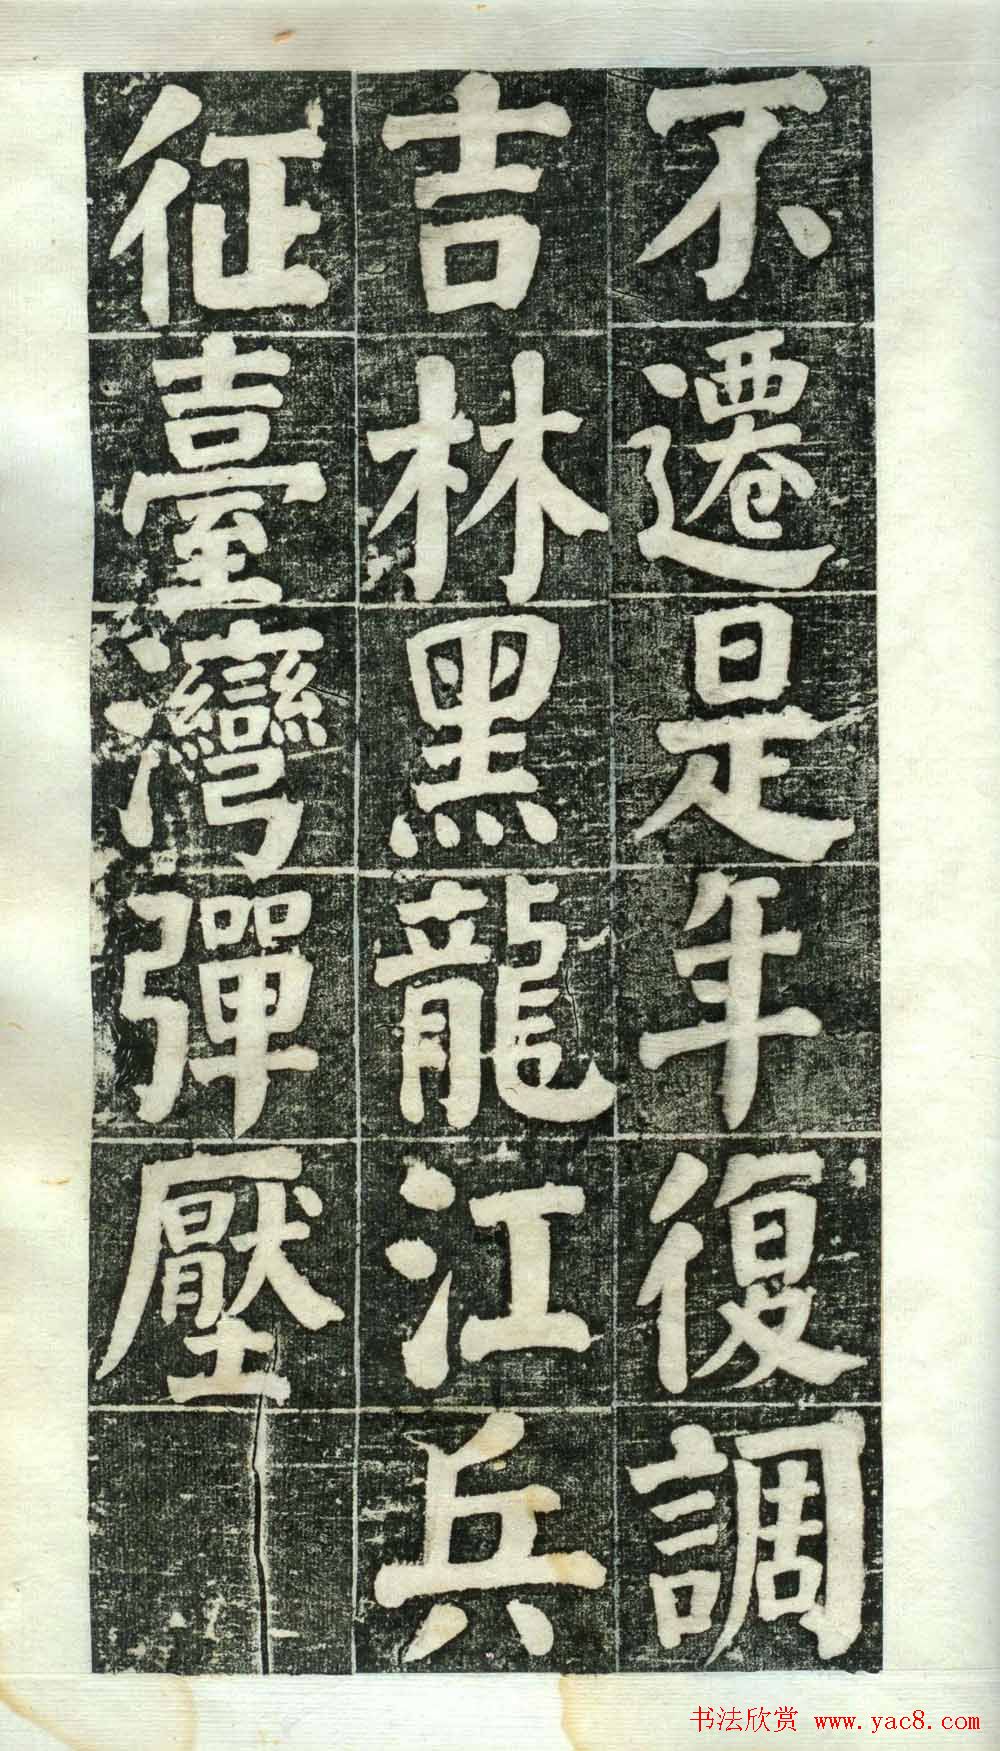 不遷是年復調
吉林黑龍江兵
征臺灣彈壓
书法欣赏 www.yac8.com